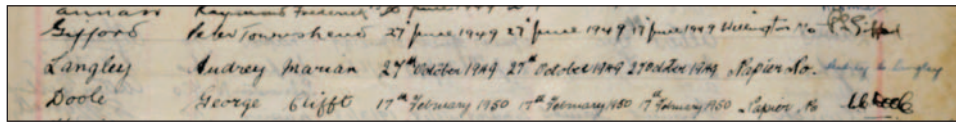 Raymond Frederick
Gifford Peter Townshend 27 June 1949 27 June 1949 17 June 1949 Wellington No P.T. Gifford
Langley Audrey Marian 27th October 1949 27th October 1949 27 October 1949 Napier No. Audrey M Langley
Doole George Clifft 17th February 1950 17th February 1950 17th February 1950 Napier No